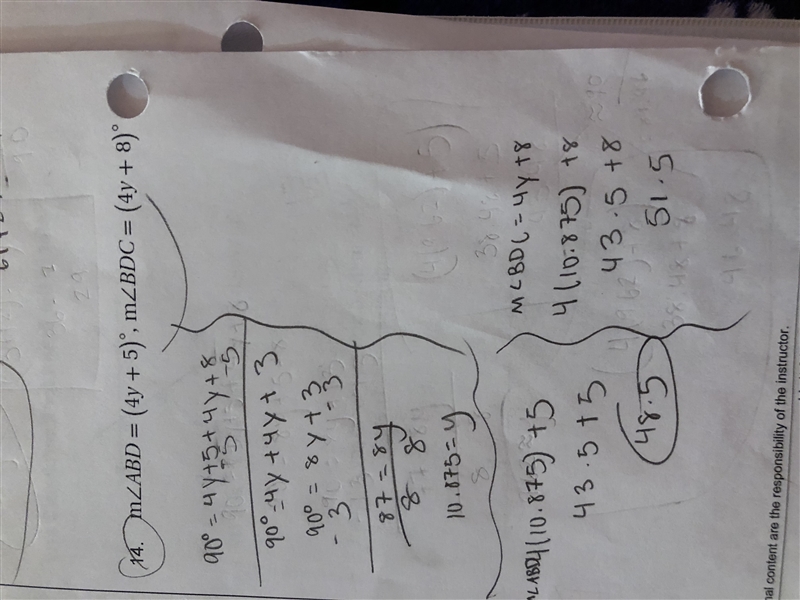 14. m∠ABD = (4y + 5)°, m∠BDC = (4y + 8)°
90° = 4y+5+4y+8
-5 -5
90° = 4y+4y+3
90° = 8y+3
-3 -3
87 = 8y
8 8
10.875 = y
4(10.875) + 5
43.5 + 5
48.5
m∠BDC = 4y+8
4(10.875) +8
43.5 +8
51.5
nal content are the responsibility of the instructor.